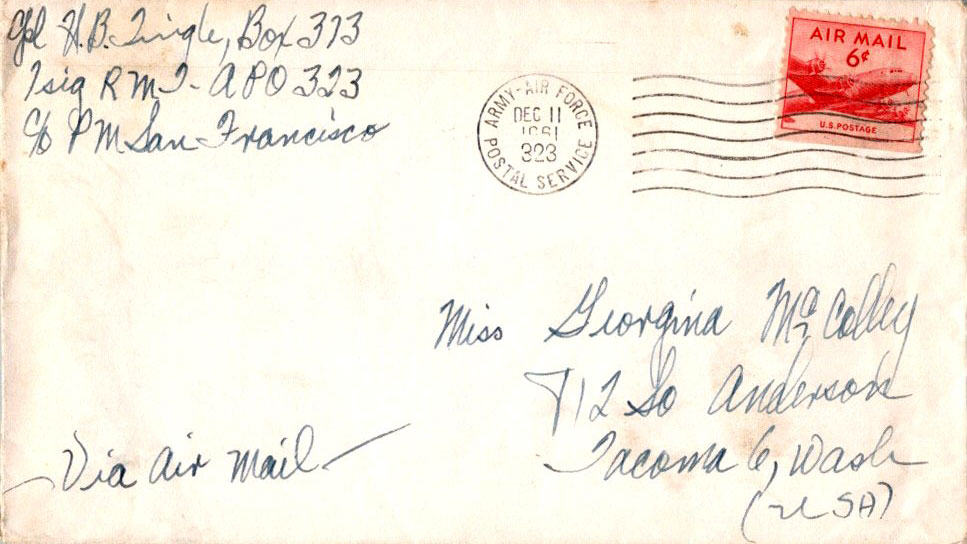 Cpl H.B. Tingle, Box 313
7sig R M T - APO 323
c/o PM San-Francisco
ARMY-AIR FORCE
DEC 11
1951
323
POSTAL SERVICE
AIR MAIL
6¢
U.S. POSTAGE
Miss Georgina McColley
712 So Anderson
Tacoma 6, Wash
(USA)
Via Air Mail